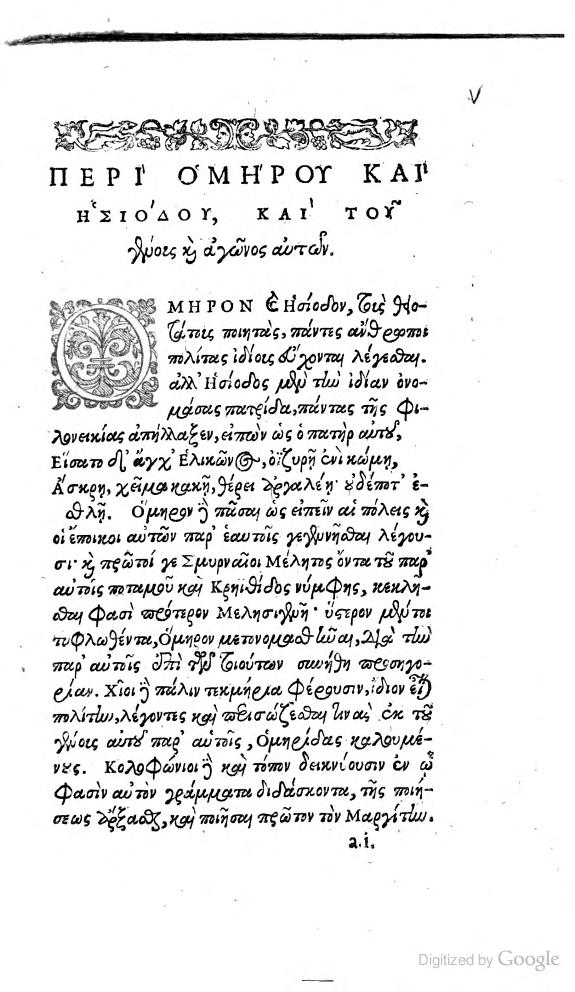 V
ΠΕΡΙ ὉΜΗΡΟΥ ΚΑΙ
ἩΣΙΟΔΟΥ, ΚΑΙ ΤΟΥ
γένοις καὶ ἀγῶνος αὐτῶν.
ΟΜΗΡΟΝ καὶ Ησίοδον, τοὺς θειο-
τάτοις ποιητὰς, πάντες ἄνθρωποι
πολίτας ἰδίοις εὔχονται λέγεσθαι.
ἀλλ' Ησίοδος μὲν τὴν ἰδίαν ὀνο-
μάσας πατρίδα, πάντας τῆς φι-
λονεικίας ἀπήλλαξεν, εἰπὼν ὡς ὁ πατὴρ αὐτοῦ,
Εἵσατο δ' ἄγχ' Ἑλικῶνος, ὀϊζυρῇ ἐνὶ κώμῃ,
Ἄσκρῃ, χεῖμα κακῇ, θέρει ἀργαλέῃ· οὐδέποτ' ἐ-
σθλῇ. Ὅμηρον δὲ πᾶσαι ὡς εἰπεῖν αἱ πόλεις καὶ
οἱ ἔποικοι αὐτῶν παρ' ἑαυτοῖς γεγενῆσθαι λέγου-
σι· καὶ πρῶτοί γε Σμυρναῖοι Μέλητος ὄντα τοῦ παρ'
αὐτοῖς ποταμοῦ καὶ Κρηϊθίδος νύμφης, κεκλῆ-
σθαι φασὶ πρότερον Μελησιγενῆ· ὕστερον μέντοι
τυφλωθέντα, Ὅμηρον μετονομασθῆναι, διὰ τὴν
παρ' αὐτοῖς ἐπὶ τῶν τοιούτων συνήθη προσηγο-
ρίαν. Χῖοι δὲ πάλιν τεκμήρια φέρουσιν, ἴδιον εἶναι
πολίτην, λέγοντες καὶ περισώζεσθαι τινας ἐκ τοῦ
γένοις αὐτοῦ παρ' αὐτοῖς, Ὁμηρίδας καλουμέ-
νους. Κολοφώνιοι δὲ καὶ τόπον δεικνύουσιν ἐν ᾧ
φασὶν αὐτὸν γράμματα διδάσκοντα, τῆς ποιή-
σεως ἄρξασθαι, καὶ ποιῆσαι πρῶτον τὸν Μαργίτην.
a.i.
Digitized by Google